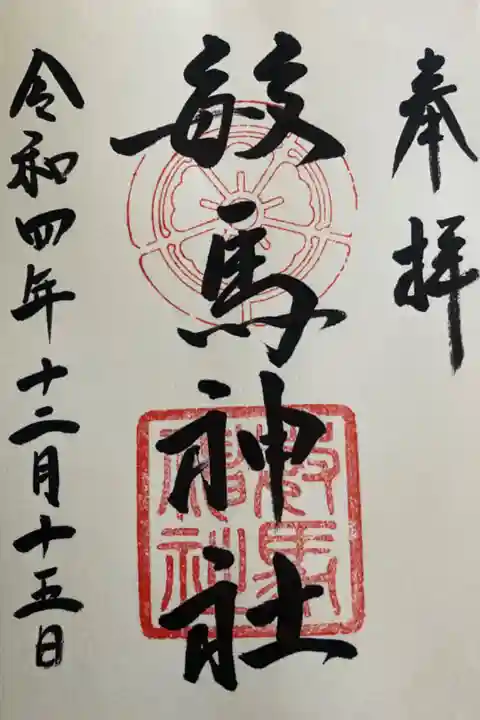 奉拝
敏馬神社
令和四年十二月十五日
敏馬神社